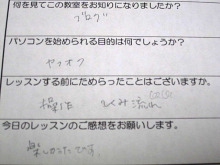 何を見てこの教室をお知りになりましたか?
ブログ
パソコンを始められる目的は何でしょうか?
ヤフオク
レッスンする前にためらったことはございますか。
今日のレッスンのご感想をお願いします。
楽しかったです